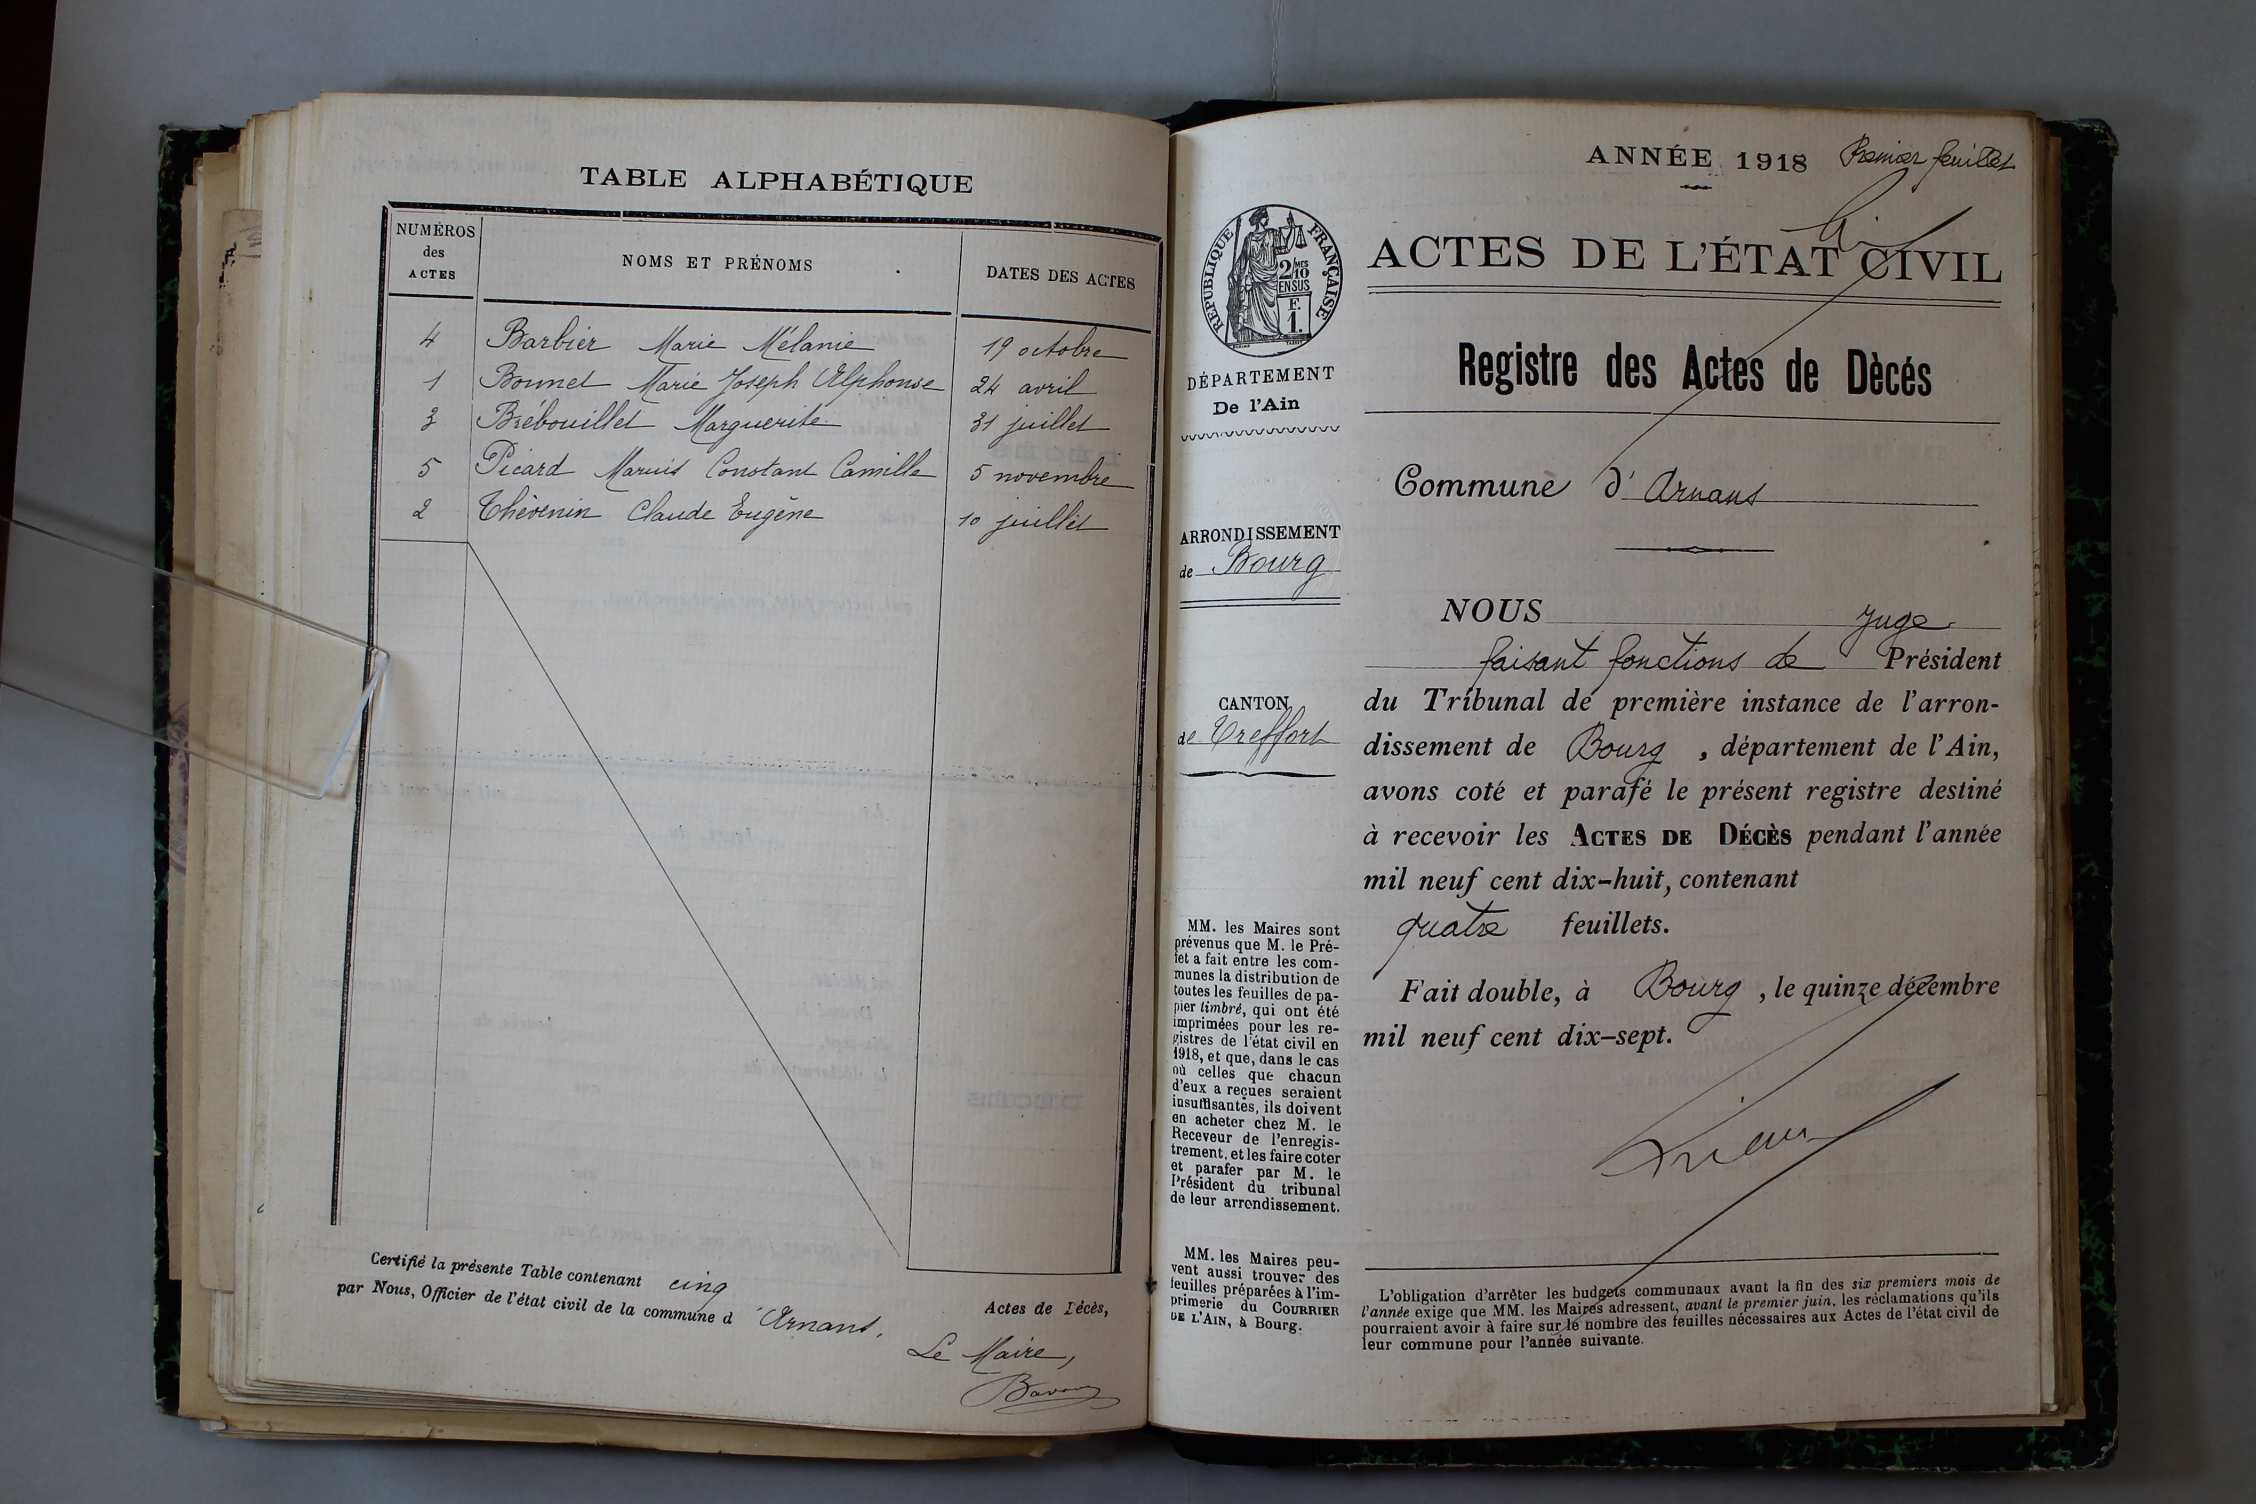 TABLE ALPHABÉTIQUE
NUMÉROS
des
ACTES
NOMS ET PRÉNOMS
DATES DES ACTES
4 Barbier Marie Mélanie 19 octobre
1 Bonnet Marie Joseph Alphonse 24 avril
3 Brébouillet Marguerite 31 juillet
5 Picard Marius Constant Camille 5 novembre
2 Thévenin Claude Eugène 10 juillet
Certifié la présente Table contenant cinq
Actes de Décès,
par Nous, Officier de l'état civil de la commune d'Arnans.
Le Maire,
ANNÉE 1918 Premier feuillet
RÉPUBLIQUE FRANÇAISE
2/10 MES
EN SUS
F.
1.
DÉPARTEMENT
De l'Ain
ARRONDISSEMENT
de Bourg
CANTON
de Treffort
MM. les Maires sont
prévenus que M. le Pré-
fet a fait entre les com-
munes la distribution de
toutes les feuilles de pa-
pier timbré, qui ont été
imprimées pour les re-
gistres de l'état civil en
1918, et que, dans le cas
où celles que chacun
d'eux a reçues seraient
insuffisantes, ils doivent
en acheter chez M. le
Receveur de l'enregis-
trement, et les faire coter
et parafer par M. le
Président du tribunal
de leur arrondissement.
MM. les Maires peu-
vent aussi trouver des
feuilles préparées à l'im-
primerie du COURRIER
DE L'AIN, à Bourg.
ACTES DE L'ÉTAT CIVIL
Registre des Actes de Dècés
Commune d'Arnans
NOUS Juge
faisant fonctions de Président
du Tribunal de première instance de l'arron-
dissement de Bourg, département de l'Ain,
avons coté et parafé le présent registre destiné
à recevoir les ACTES DE DÉCÈS pendant l'année
mil neuf cent dix-huit, contenant
quatre feuillets.
Fait double, à Bourg, le quinze décembre
mil neuf cent dix-sept.
L'obligation d'arrêter les budgets communaux avant la fin des six premiers mois de
l'année exige que MM. les Maires adressent, avant le premier juin, les réclamations qu'ils
pourraient avoir à faire sur le nombre des feuilles nécessaires aux Actes de l'état civil de
leur commune pour l'année suivante.